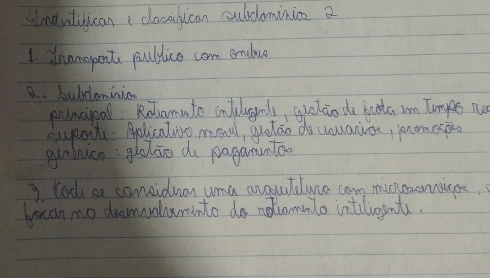 Identificar e classificar subdominios 2
1. Transporte publico com onibus
2. Subdominios
principal: Roteamento inteligente, gestão de frota em tempo rea
suporte: Aplicativo movel, gestão de usuarios, promoções
genérico: gestão de pagamentos
3. Pode se considerar uma arquitetura com microserviços,
focar no desenvolvimento do roteamento inteligente.